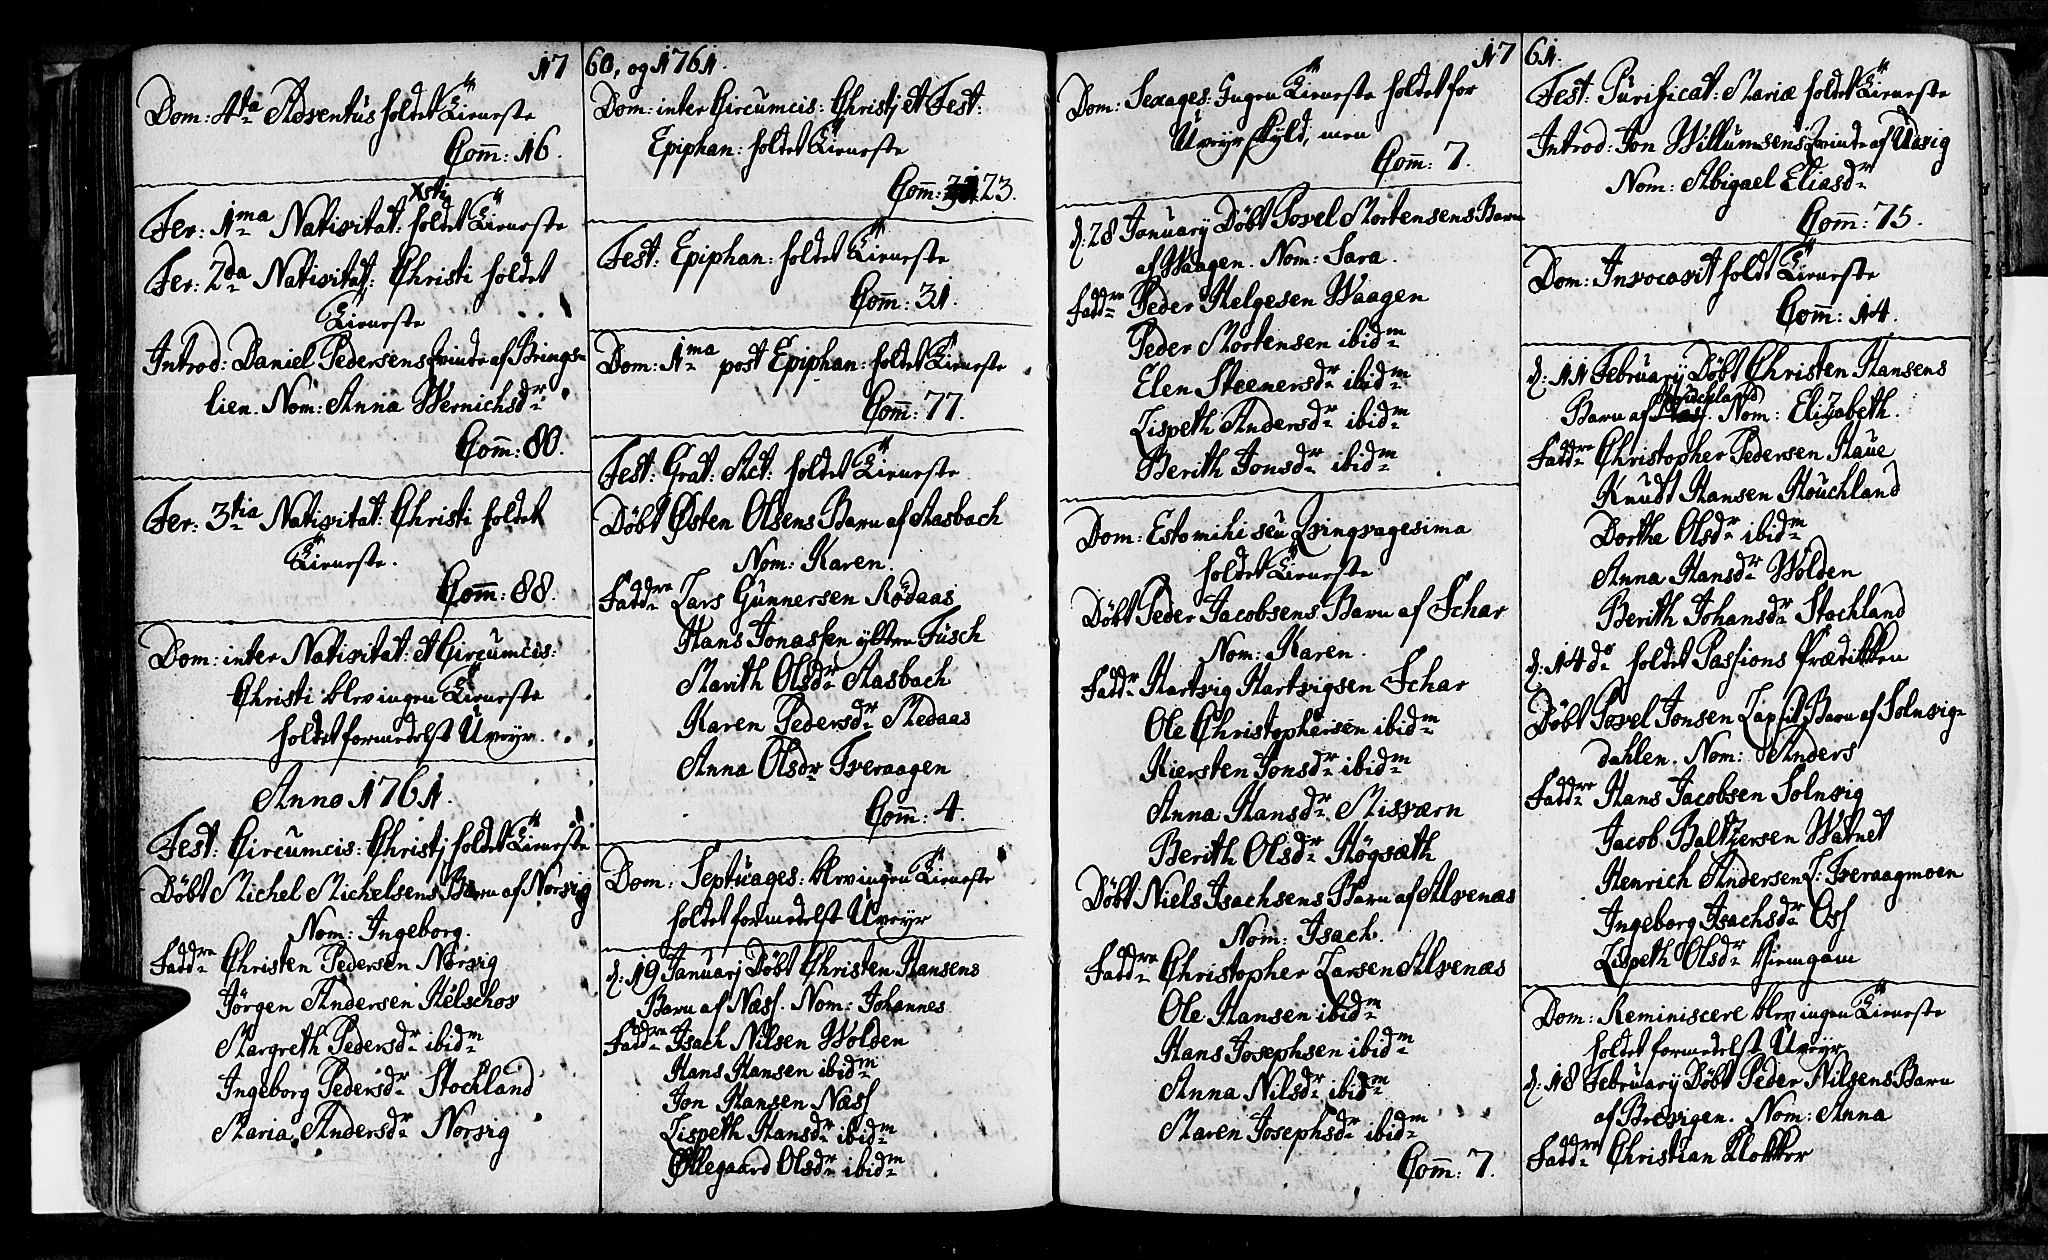 1760, og 1761.
Dom: 4ta Adventus holdet Tieneste
Comm: 16.
Fer: 1ma Nativitat: Xsti holdet Tieneste
Fer: 2da Nativitat: Christi holdet
Tieneste
Introd: Daniel Pedersens Qvinde af Brings-
lien. Nom: Anna Wernichsdr
Comm: 80.
Fer: 3tia Nativitat: Christi holdet
Tieneste.
Comm: 88.
Dom: inter Nativitat: et Circumcis:
Christi blev ingen Tieneste
holdet formedelst Uveyr.
Anno 1761.
Fest: Circumcis: Christj holdet Tieneste
Döbt Michel Michelsens Barn af Norvig
Nom: Ingeborg.
Faddre Christen Pedersen Norvig
Jörgen Andersen Helschov
Margreth Pedersdr ibidm
Ingeborg Pedersdr Stochland
Maria Andersdr Norvig
Dom: inter Circumcis: Christj et Fest:
Epiphan: holdet Tieneste
Comm: 23.
Fest: Epiphan: holdet Tieneste
Comm: 31.
Dom: 1ma post Epiphan: holdet Tieneste
Comm: 77.
Fest: Grat: Act: holdet Tieneste
Döbt Østen Olsens Barn af Aasbach
Nom: Karen.
Faddre Lars Gunnersen Rödaas
Hans Jonassen Fusch
Marith Olsdr Aasbach
Karen Pedersdr Medaas
Anna Olsdr Tveraagen
Comm: 4.
Dom: Septuages: blev ingen Tieneste
holdet formedelst Uveyr
d: 19 Januarj Döbt Christen Hansens
Barn af Næss. Nom: Johannes
Faddre Isach Nilsen Wolden
Hans Hansen ibidm
Jon Hansen Næss
Lispeth Hansdr ibidm
Øllegaard Olsdr ibidm
1761.
Dom: Sexages: Ingen Tieneste holdet for
Uveyr skyld, men
Comm: 7.
d: 28 January Döbt Povel Mortensens Barn
af Waagen. Nom: Sara.
Faddre Peder Helgesen Waagen
Peder Mortensen ibidm
Elen Steenersdr ibidm
Lispeth Andersdr ibidm
Berith Jonsdr ibidm
Dom: Estomihi seu Qvinqvagesima
holdet Tieneste
Döbt Peder Jacobsens Barn af Schar
Nom: Karen.
Faddr Hartvig Hartvigsen Schar
Ole Christophersen ibidm
Kiersten Jonsdr ibidm
Anna Hansdr Misværn
Berith Olsdr Högsæth
Döbt Niels Isachsens Barn af Alvenæs
Nom: Isach.
Faddre Christopher Larsen Alvenæs
Ole Hansen ibidm
Hans Josephsen ibidm
Anna Nilsdr ibidm
Maren Josephsdr ibidm
Comm: 7.
Fest: Purificat: Mariæ holdet Tieneste
Introd: Jon Willumsens Qvinde af Udvig
Nom: Abigael Eliasdr
Comm: 75.
Dom: Invocavit holdt Tieneste
Comm: 14.
d: 11 February Döbt Christen Hansens
Barn af Nom: Elizabeth.
Faddre Christopher Pedersen Haue
Knudt Hansen Houchland
Dorthe Olsdr ibidm
Anna Hansdr Wolden
Berith Johansdr Stochland
d: 14 do holdet Passions Prædikken
Döbt Povel Jonsen Barn af Solvvig-
dahlen. Nom: Anders
Faddre Hans Jacobsen Solnvig
Jacob Baltzersen Watnet
Henrich Andersen L: Tveraagmoen
Ingeborg Isachsdr Oss
Lispeth Olsdr
Dom: Reminiscere blev ingen Tieneste
holdet formedelst Uveyr
d: 18 February Döbt Peder Nilsens Barn
af Brevigen. Nom: Anna
Faddre Christian Klokker